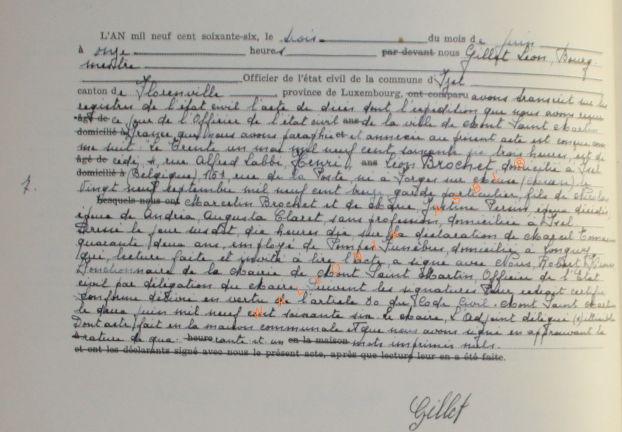 L'AN mil neuf cent soixante-six, le trois du mois de juin
à onze heures par devant nous Gillet Léon, Bourg-
mestre
Officier de l'état civil de la commune d'Izel
canton de Florenville, province de Luxembourg, ont comparu avons transcrit sur les
registres de l'état civil l'acte de décès dont l'expédition que nous avons reçue
âgé de ce jour de l'Officier de l'état civil ans de la ville de Mont Saint Martin
domicilié à France que nous avons paraphé et et annexée au présent acte est conçue com-
me suit: Le trente un mai mil neuf cent soixante six trois heures, est dé-
âgé de cédé, 4, rue Alfred Labbé Henri ans Léon Brochet domicilié à Izel
domicilié à Belgique), 161, rue de la Poste né à
vingt neuf septembre mil neuf cent garde particulier, fils de Nicolas
lesquels nous ont Marcelin Brochet et de Marie Justine Persin époux
époux de Andréa, Augusta Claret, sans profession, domiciliée à Izel
Dressé le jour susdit, dix heures sur la déclaration de Marcel
quarante deux ans, employé de Pompes Funèbres, domicilié à Longwy
qui, lecture faite et invité à lire l'acte, a signé avec Nous, Robert
fonctionnaire de la Mairie de Mont Saint Martin, Officier de l'Etat
civil par délégation du Maire, Suivent les signatures. Pour extrait certifié
conforme délivré en vertu de l'article 80 du Code Civil. Mont Saint Martin
le deux juin mil neuf cent soixante six le Maire, L'adjoint délégué (s) illisible
Dont acte, fait en la maison communale et que nous avons signé en approuvant la
à rature de qua- heure rante et un en la maison mots imprimés nuls.
et ont les déclarants signé avec nous le présent acte, après que lecture leur en a été faite.
7.
Gillet